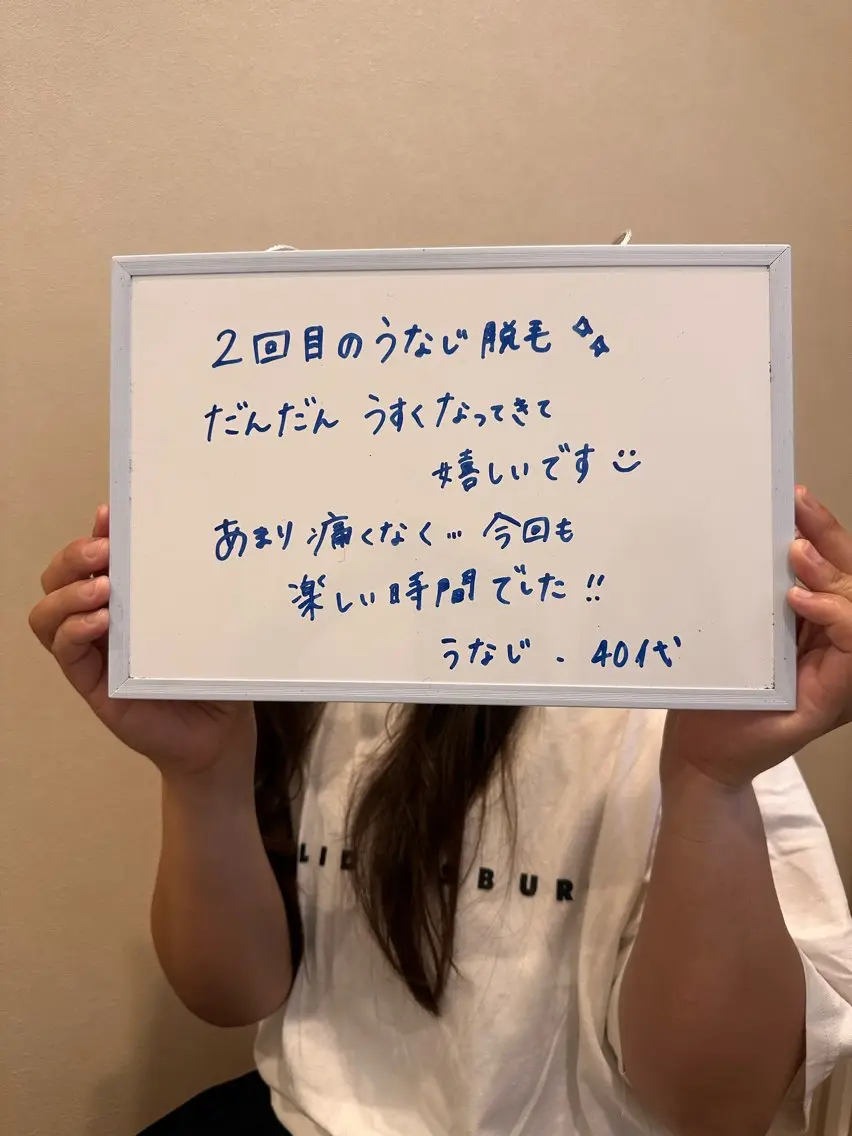 2回目のうなじ脱毛
だんだん うすくなってきて
嬉しいです
あまり痛くなく… 今回も
楽しい時間でした!!
うなじ . 40代
LIE BUR